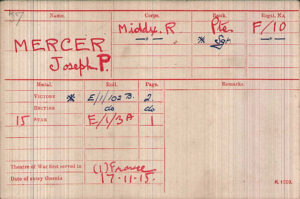 Name. Corps. Rank. Regtl. No.
MERCER Middx. R. Pte. F/10
Joseph P. " * Sgt.
Medal. Roll. Page. Remarks.
VICTORY * E/1/102 B. 2.
BRITISH do do
15 STAR E/1/3A 1
Theatre of War first served in (1) France
Date of entry therein 17-11-15.
K. 1380.